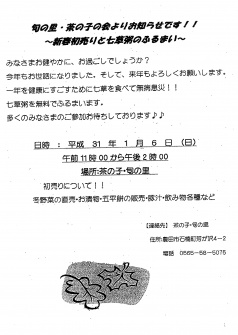 旬の里・茶の子の会よりお知らせです！！
～新春初売りと七草粥のふるまい～
みなさまお健やかに、お過ごしでしょうか？
今年もお世話になりました。そして、来年もよろしくお願いします。
一年を健康にすごすために七草を食べて無病息災！！
七草粥を無料でふるまいます。
多くのみなさまのご参加お待ちしております♪♪
日時：平成 31 年 1 月 6 日（日）
午前11時00から午後2時00
場所:茶の子・旬の里
初売りについて！！
冬野菜の直売・お漬物・五平餅の販売・豚汁・飲み物各種など
【連絡先】 茶の子・旬の里
住所:豊田市石楠町芳が沢4－2
電話 0565-58-5075